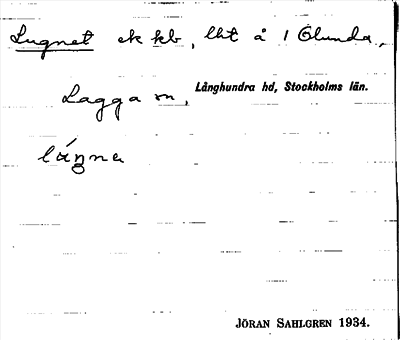 Lugnet ek kb, lht å 1 Ölunda,
Lagga sn, Långhundra hd, Stockholms län.
JÖRAN SAHLGREN 1934.